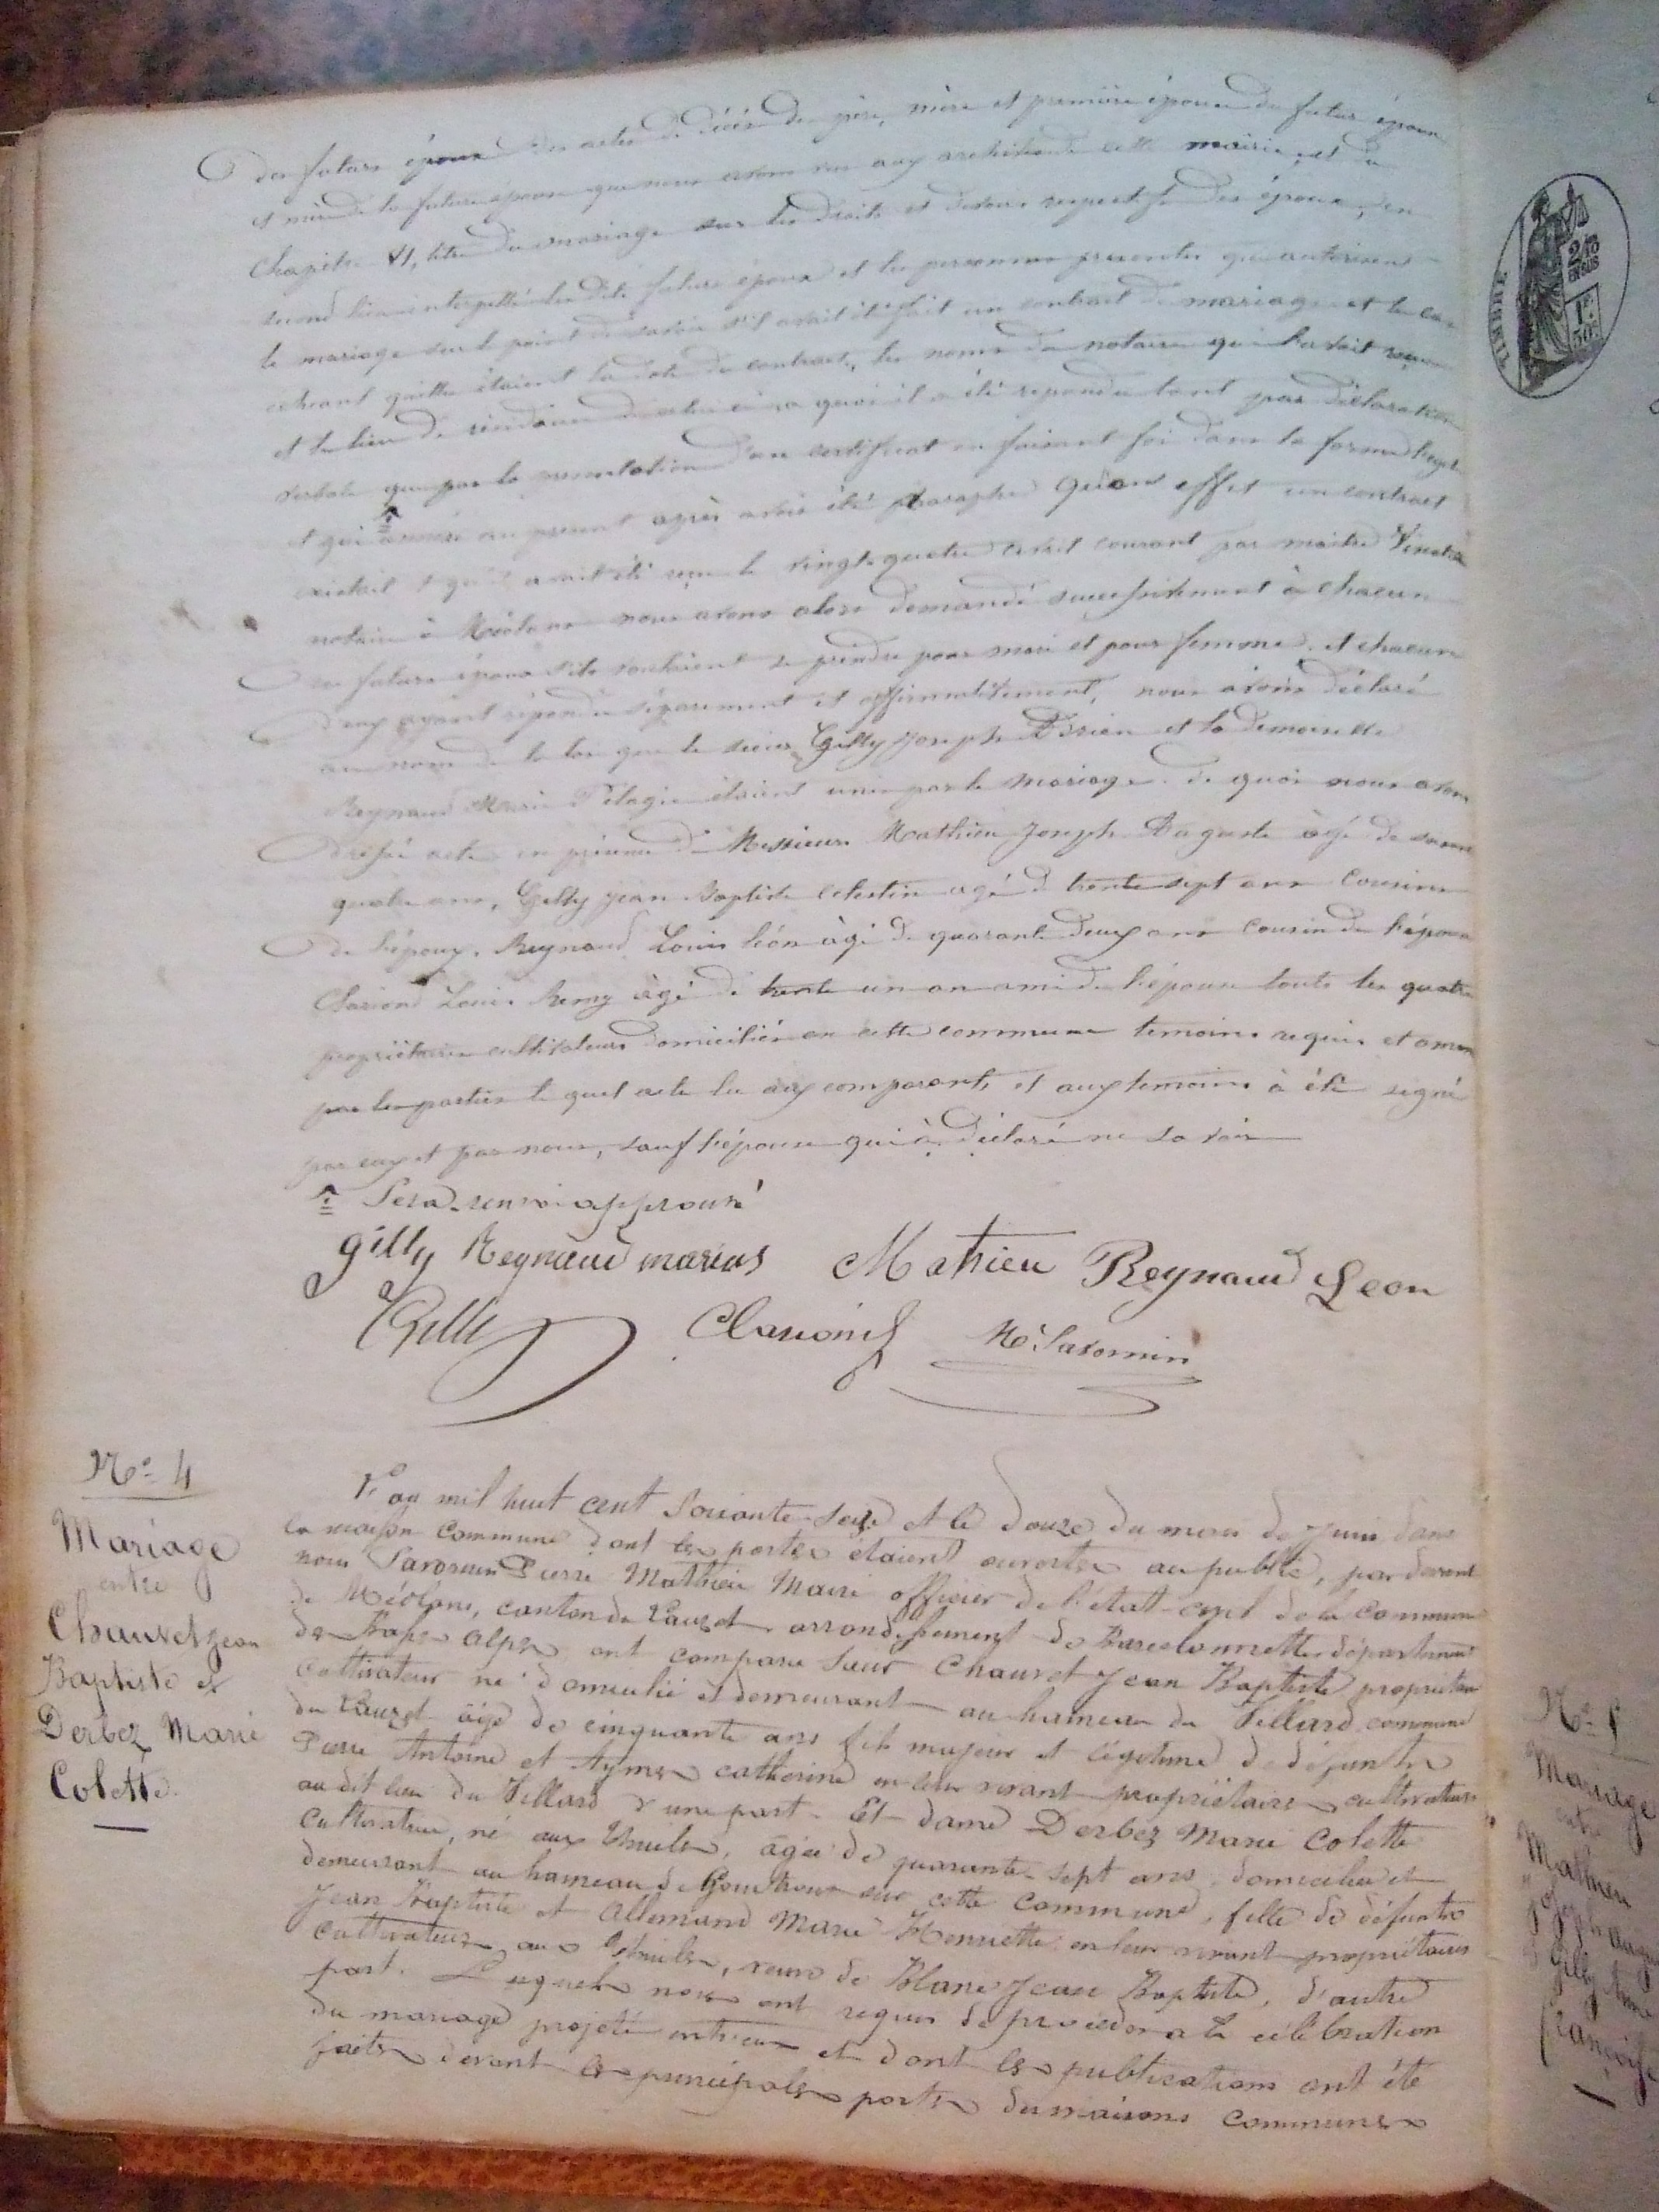 des futurs époux des actes de décès des père, mère et première épouse du futur époux
et mère de la future épouse que nous avons vus aux archives de cette mairie, et du
chapitre VI, titre du mariage sur les droits et devoirs respectifs des époux, en
second lieu interpellé les dits futurs époux et les personnes presentes qui autorisent
le mariage sur le point de savoir s'il avait été fait un contrat de mariage et le cas
echeant quelle étaient la date du contrat, les noms du notaire qui l'avait reçu
et le lieu de résidence de celui ci, a quoi il a été repondu tant par déclaration
verbale que par la presentation d'un certificat en faisant foi dans la forme légale
et qui annexé au present après avoir été paraphé qu'en effet un contrat
existait et qu'il avait été reçu le vingt quatre avril courant par maitre
notaire à Méolans nous avons alors demandé successivement à chacun
des futurs époux s'ils voulaient se prendre pour mari et pour femme, et chacun
d'eux ayant répondu séparement et affirmativement, nous avons déclaré
au nom de la loi que le sieur Gilly Joseph Adrien et la demoiselle
Reynaud Marie Pélagie étaient unis par le mariage. de quoi nous avons
dressé acte en présence de Messieurs Mathieu Joseph Auguste âgé de
quatre ans, Gilly Jean Baptiste Celestin agé de trente sept ans cousins
de l'époux, Reynaud Louis Léon âgé de quarante deux ans cousin de l'épouse
Clariond Louis Remy âgé de trente un an ami de l'épouse touts les quatre
propriétaires cultivateurs domiciliés en cette commune temoins requis et
par les parties le quel acte lu aux comparants et aux temoins à été signé
par eux et par nous, sauf l'épouse qui à déclaré ne savoir
Sera. renvoi approuvé
Gilly Reynaud marius Mathieu Reynaud Leon
Gilly Clariond Mu Savornin
TIMBRE
2/10
EN SUS
1F.
50C.
N° 4
Mariage
entre
Chauvet Jean
Baptiste et
Derbez Marie
Colette.
L'an mil huit cent Soixante-seize et le douze du mois de Juin dans
la maison commune dont les portes étaient ouvertes au public, par devant
nous Savornin Pierre Mathieu Maire officier de l'état-civil de la commune
de Méolans, canton du Lauzet arrondissement de Barcelonnette département
des Basses Alpes, ont comparu Sieur Chauvet Jean Baptiste propriétaire
cultivateur né domicilié et demeurant au hameau du Villard commune
du Lauzet âgé de cinquante ans fils majeur et légitime de défunts
Pierre Antoine et Aymes catherine en leur vivant propriétaires cultivateurs
au dit lieu du Villard d'une part. Et dame Derbez Marie Colette
Cultivatrice, né aux Thuiles, agée de quarante-sept ans, domiciliée et
demeurant au hameau de sur cette commune, fille de défunts
Jean Baptiste et Allemand Marie Henriette en leur vivant propriétaires
cultivateurs aux Thuiles, veuve de Blanc Jean Baptiste, d'autre
part. Lesquels nous ont requis de procéder a la célébration
du mariage projeté entreeux et dont les publications ont été
faites devant les principales portes des maisons communes
N° 5
Mariage
entre
Mathieu
Joseph
& Gilly
françoise